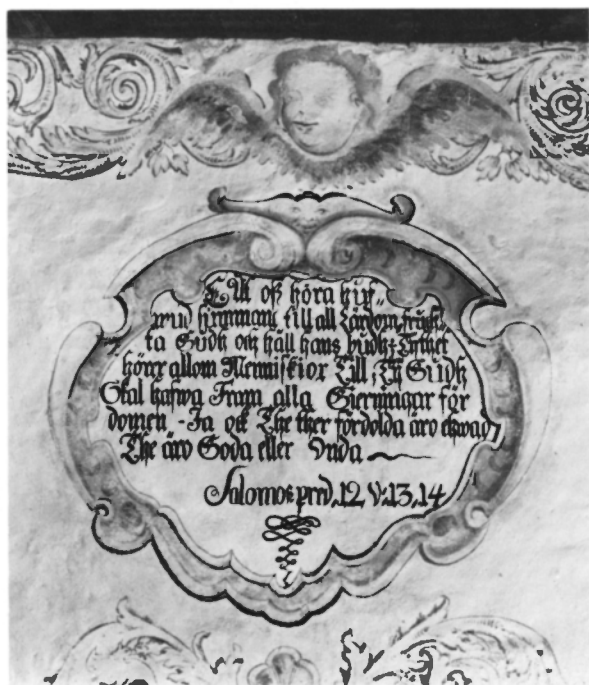 Låt oß höra huf„
wud summan till all Lärdom, frucht
ta Gudh och håll hans budh; Ty thet
hörer allom Menniskior Till, Ty Gudh
Skal hafwa Fram alla Gierningar för
domen - Ja ock The ther fördolda äro ehwad
The äro Goda eller Onda
Salomos pred, 12 V: 13, 14